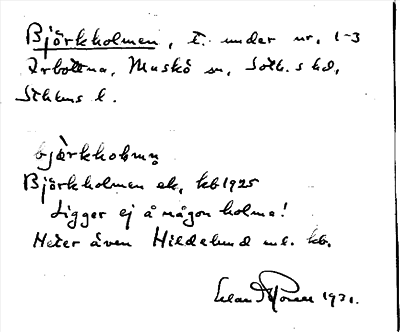 Björkholmen, t. under nr. 1-3
Arbottna, Muskö sn, Soth.s hd,
Sthlms l.
bjærkholmn
Björkholmen ek. kb 1925
Ligger ej å någon holme!
Heter även Hildelund enl. kb.
1931.